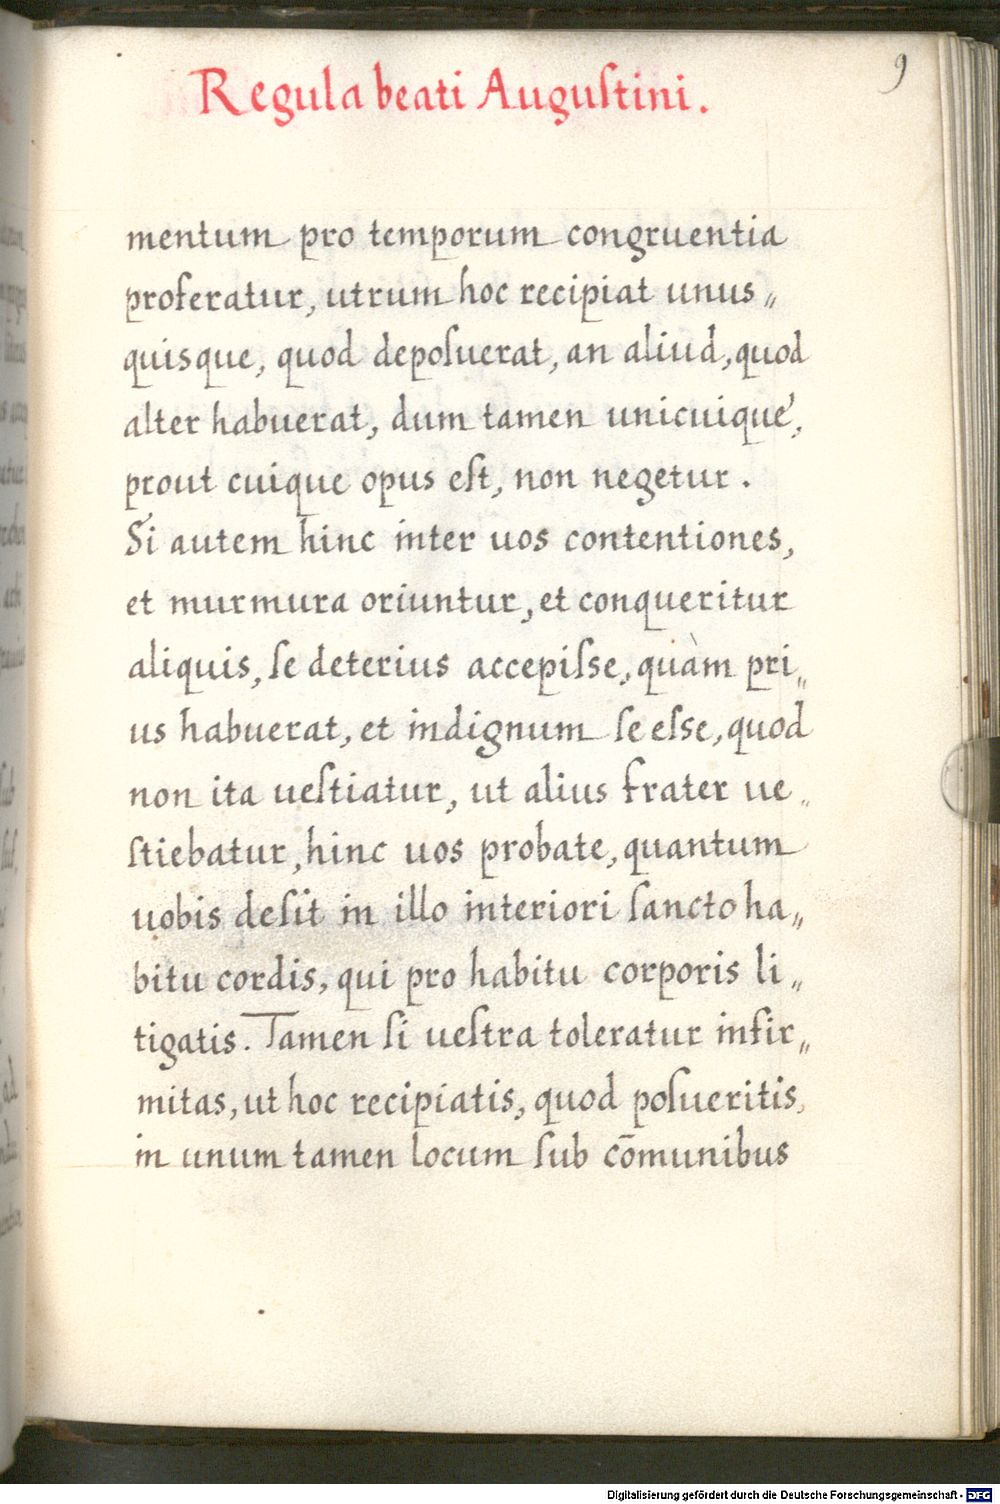 9
Regula beati Auguſtini.
mentum pro temporum congruentia
proferatur, utrum hoc recipiat unus„
quisque, quod depoſuerat, an aliud, quod
alter habuerat, dum tamen unicuique,
prout cuique opus eſt, non negetur.
Si autem hinc inter uos contentiones,
et murmura oriuntur, et conqueritur
aliquis, ſe deterius accepiſse, quàm pri„
us habuerat, et indignum ſe eſse, quod
non ita ueſtiatur, ut alius frater ue„
ſtiebatur, hinc uos probate, quantum
uobis deſit in illo interiori ſancto ha„
bitu cordis, qui pro habitu corporis li„
tigatis. Tamen ſi ueſtra toleratur infir„
mitas, ut hoc recipiatis, quod poſueritis,
in unum tamen locum ſub cōmunibus
Digitalisierung gefördert durch die Deutsche Forschungsgemeinschaft - DFG